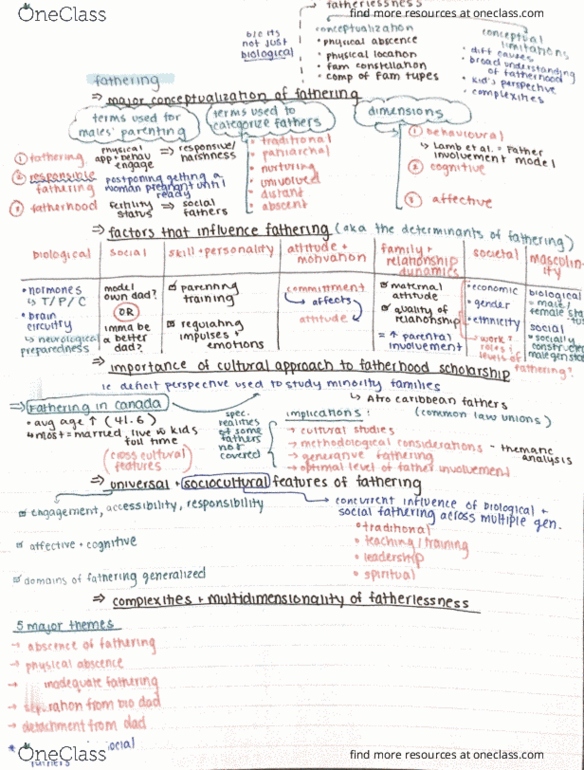 fatherlessness
OneClass
find more resources at oneclass.com
b/c its
not just
biological
conceptualization
• physical absence
• physical location
• fam constellation
• comp of fam types
conceptual
limitations
• diff causes
• broad understanding
of fatherhood
• kid's perspective
• complexities
fathering
⇒ major conceptualization of fathering
terms used for
males' parenting
terms used to
categorize fathers
dimensions
① fathering
physical
app + behav
engage
⇒ responsive/
harshness
② responsible
fathering
postponing getting a
woman pregnant until
ready
③ fatherhood
fertility
status
⇒ social
fathers
• traditional
• patriarchal
• nurturing
• uninvolved
• distant
• absent
① behavioural
↳ Lamb et al. = Father
involvement model
② cognitive
③ affective
⇒ factors that influence fathering (aka the determinants of fathering)
biological
social
skill + personality
attitude +
motivation
family +
relationship
dynamics
societal
masculin-
ity
• hormones
↳ T/P/C
• brain
circuitry
↳ neurological
preparedness
model
own dad?
OR
imma be
a better
dad?
parenting
training
regulating
impulses +
emotions
committment
affects
attitude
maternal
attitude
quality of
relationship
= ↑ parental
involvement
• economic
• gender
• ethnicity
↳ work +
roles +
levels of fathering?
biological
= male/
female
social
= socially
constructed
male gen
⇒ importance of cultural approach to fatherhood scholarship
ie deficit perspective used to study minority families
↳ Afro caribbean fathers
⇒ Fathering in Canada
• avg age ↑ (41.6)
↳ most = married, live w kids
full time
(cross cultural
features)
spec.
realities
of some
fathers
not
covered
implications:
(common law unions)
→ cultural studies
→ methodological considerations - thematic
analysis
→ generative fathering
→ optimal level of father involvement
⇒ universal + sociocultural features of fathering
engagement, accessibility, responsibility
affective + cognitive
domains of fathering generalized
concurrent influence of biological +
social fathering across multiple gen.
• traditional
• teaching/training
• leadership
• spiritual
⇒ complexities + multidimensionality of fatherlessness
5 major themes
→ absence of fathering
→ physical absence
→ inadequate fathering
→ separation from bio dad
→ detachment from dad
social
fathers
OneClass
find more resources at oneclass.com